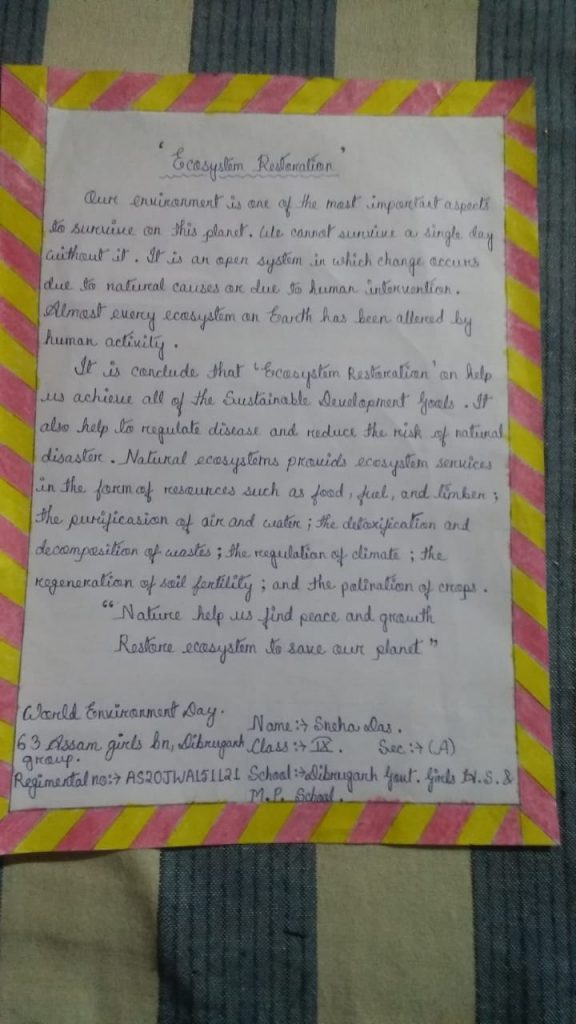 ‘Ecosystem Restoration’
Our environment is one of the most important aspects
to survive on this planet. We cannot survive a single day
without it. It is an open system in which change occurs
due to natural causes or due to human intervention.
Almost every ecosystem on Earth has been altered by
human activity.
It is conclude that ‘Ecosystem Restoration’ on help
us achieve all of the Sustainable Development Goals. It
also help to regulate disease and reduce the risk of natural
disaster. Natural ecosystems provids ecosystem services
in the form of resources such as food, fuel, and timber;
the purificasion of air and water; the detoxification and
decomposition of wastes; the regulation of climate; the
regeneration of soil fertility; and the polination of crops.
“Nature help us find peace and growth
Restore ecosystem to save our planet”
World Environment Day.
Name:→ Sneha Das.
63 Assam girls bn, Dibrugarh Class:→ IX. Sec:→ (A)
group.
Regimental no:→ AS20JWA151121 School:→ Dibrugarh Govt. Girls H.S. &
M.P. School.